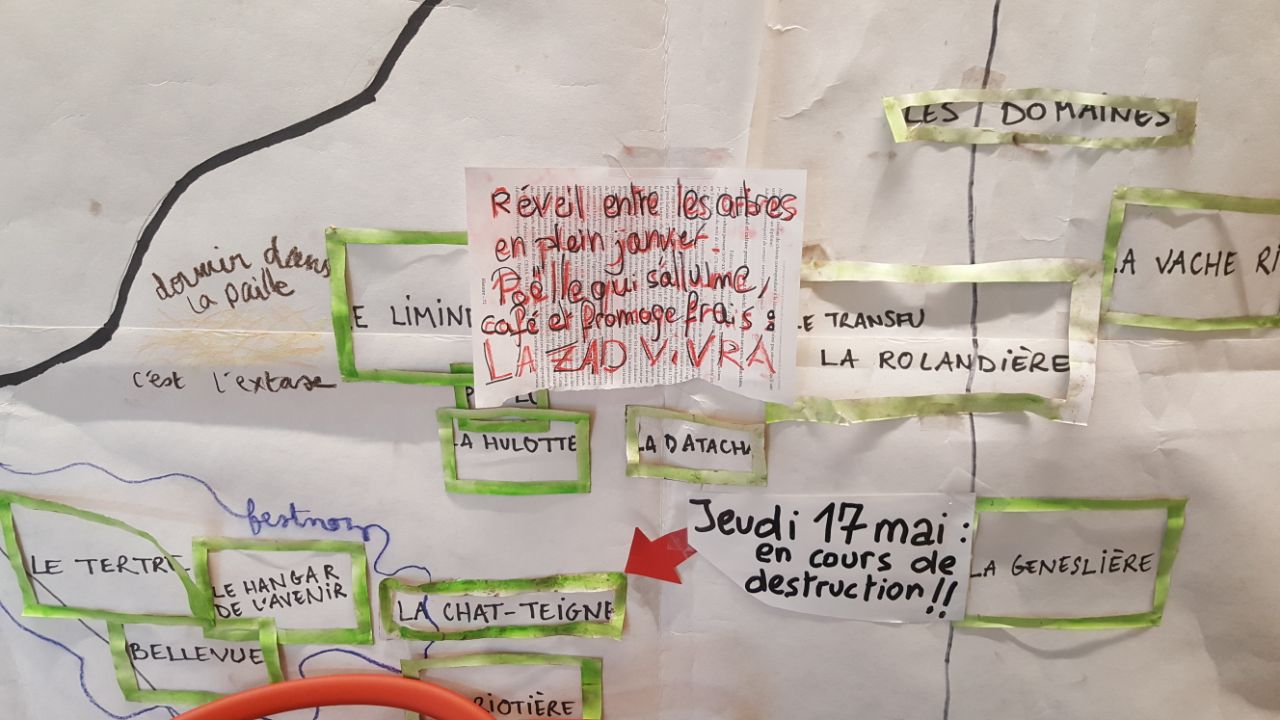 LES DOMAINES
Réveil entre les arbres
en plein janvier.
Poëlle qui s'allume,
café et fromage frais :
LA ZAD ViVRA
LA VACHE RI
dormir dans
la paille
c'est l'extase
LE LIMINI
LE TRANSFU
LA ROLANDIÈRE
LA HULOTTE
LA DATACHA
festnoz
Jeudi 17 mai :
en cours de
destruction !!
LA GENESLIÈRE
LE TERTRE
LE HANGAR
DE L'AVENIR
LA CHAT-TEIGNE
BELLEVUE
RIOTIÈRE